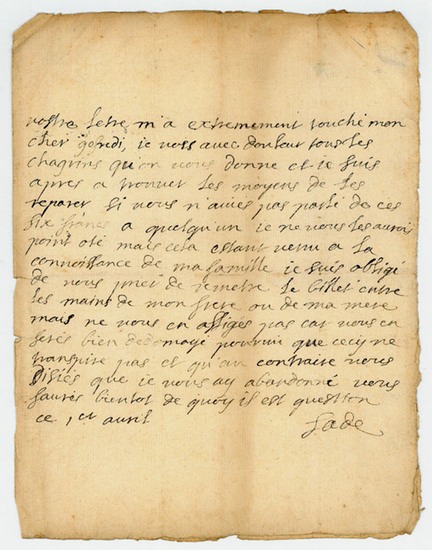 vostre letre m'a extremement touché mon
cher gofredi, je voss avec douleur tous les
chagrins qu'on vous donne et je suis
apres a trouver les moyens de les
reparer si vous n'aviés pas parlé de ces
six francs a quelqu'un je ne vous les aurois
point oté mais cela estant venu a la
connoissance de ma famille je suis obligé
de vous prier de remetre le billet entre
les mains de mon frere ou de ma mere
mais ne vous en afligés pas car vous en
serés bien dedomagé pourvu que cecy ne
transpire pas et qu'au contraire vous
disiés que je vous ay abandonné vous
saurés bientot de quoy il est question
ce 1, et avril
Sade